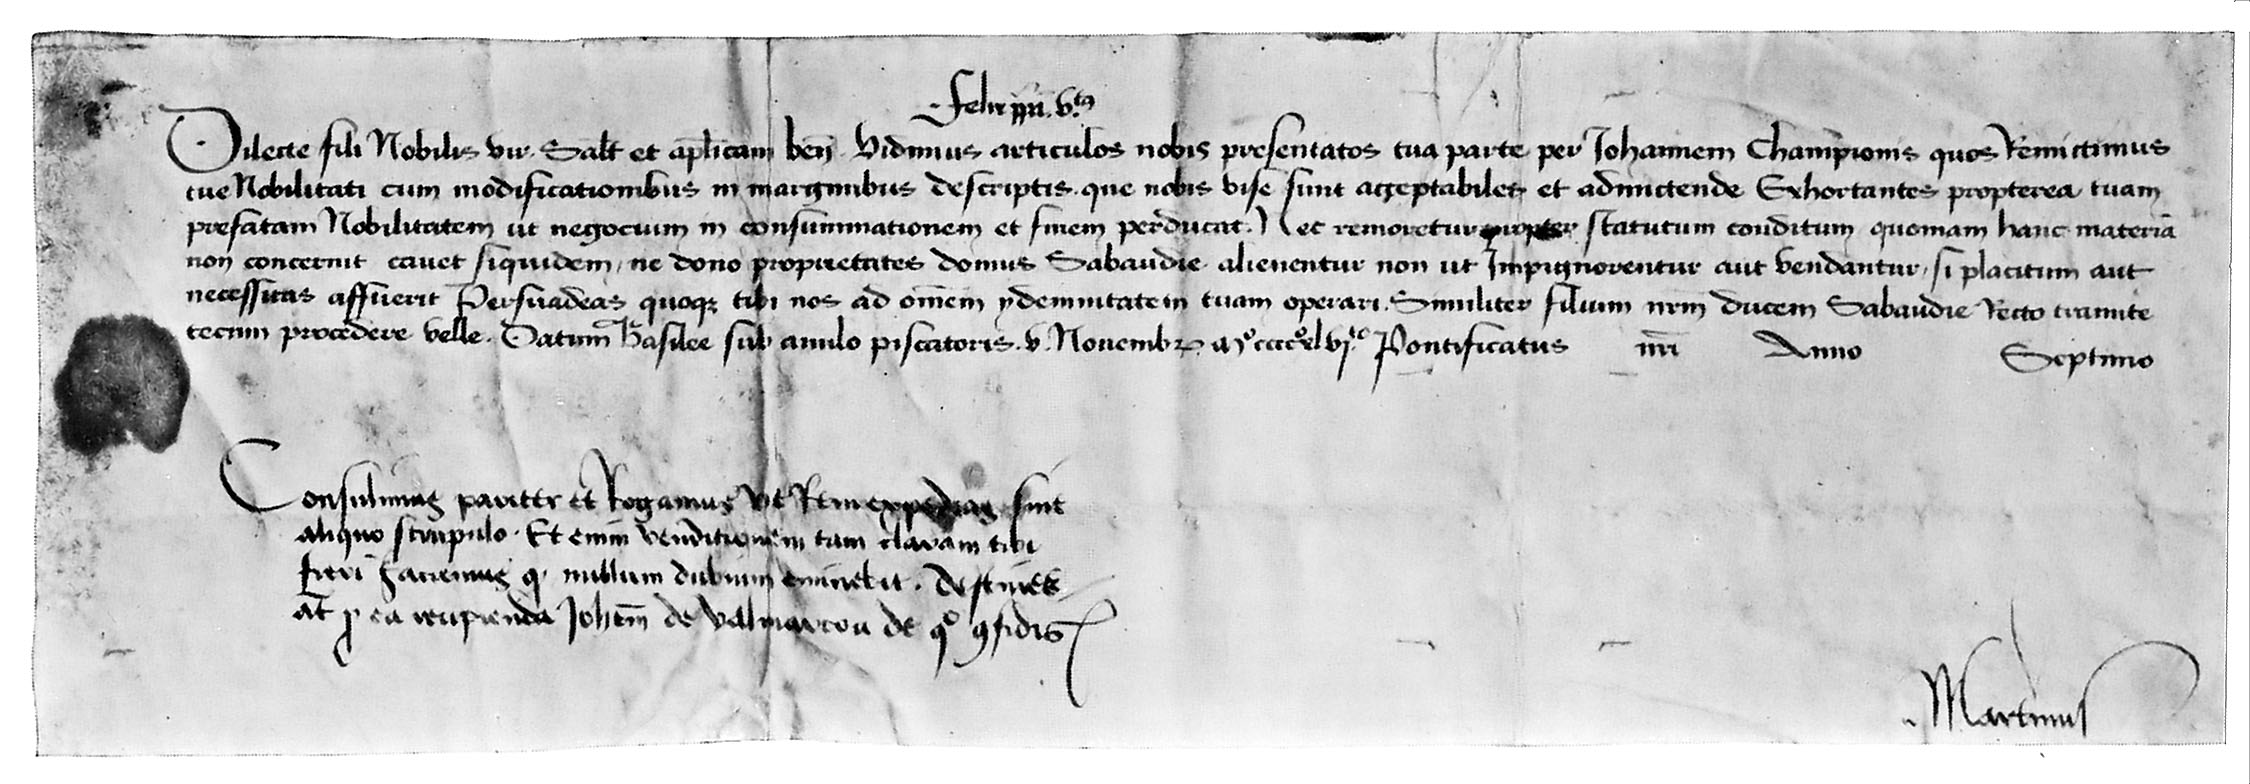 Felix pp. Vtus
Dilecte fili Nobilis vir. Salt et aplicam ben. Vidimus articulos nobis presentatos tua parte per Johannem Championis quos Remictimus
tue Nobilitati cum modificationibus in marginibus descriptis. que nobis vise sunt acceptabiles et admictende Exhortantes propterea tuam
prefatam Nobilitatem ut negocium in consummationem et finem perducat. Nec remoretur propter statutum conditum quoniam hanc materiā
non concernit cavet siquidem, ne dono proprietates domus Sabaudie alienentur non ut Impignorentur aut vendantur, si placitum aut
necessitas affuerit Persuadeas quoqz tibi nos ad omēm ydemnitatem tuam operari. Similiter filium nrm̄ ducem Sabaudie Recto tramite
tecum procedere velle. Datum Basilee sub anulo piscatoris. v. Novembr. Mº ccccº xlvjtº Pontificatus nri Anno Septimo
Consulimus pariter et Rogamus Vt Rem expedias sine
aliquo scrupulo. Et enim venditionem tam claram tibi
fieri faciemus q nullum dubium eminebit. Destines
at p ea recipienda Johem de Valmarcou de qº 9fidis
Martinus